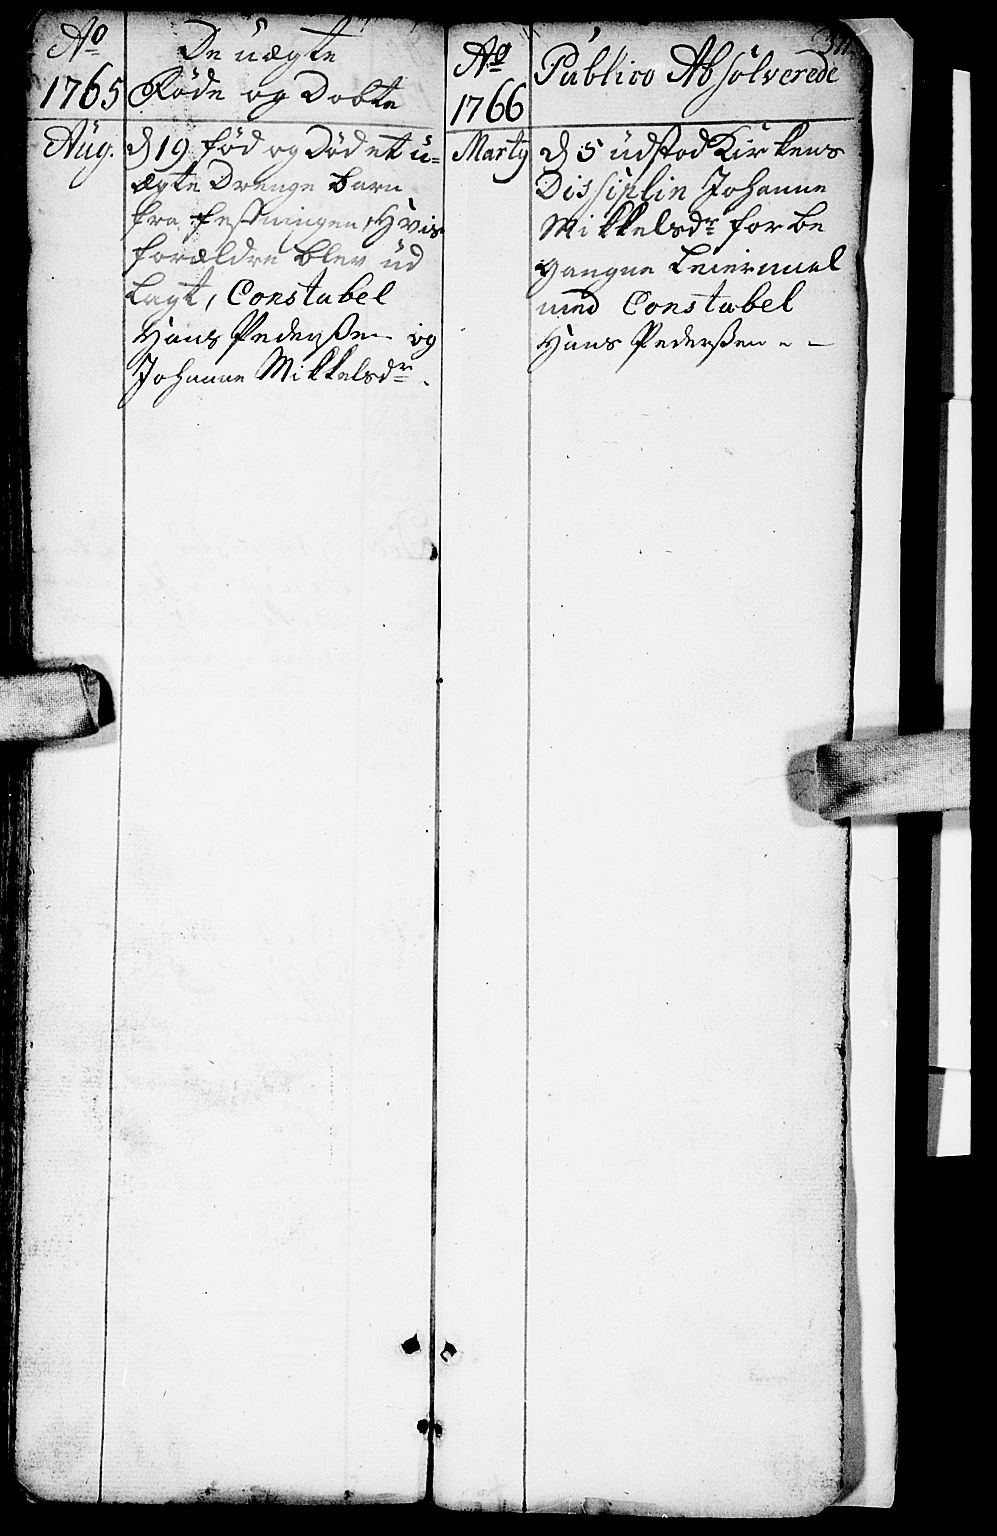 Ao
1765
De uægte
Føde og Døbte
Aug.
d 19 fød og Død et u-
ægte Drenge barn
fra festningen, Hvis
forældre blev ud
lagt, Constabel
Hans Pederßen og
Johanne Mikkelsdr.
Ao
1766
Publico Absolverede
Marty
d 5 udstod Kirkens
Dissiplin Johanne
Mikkelsdr for be
gangne Leiermael
med Constabel
Hans Pederßen - -